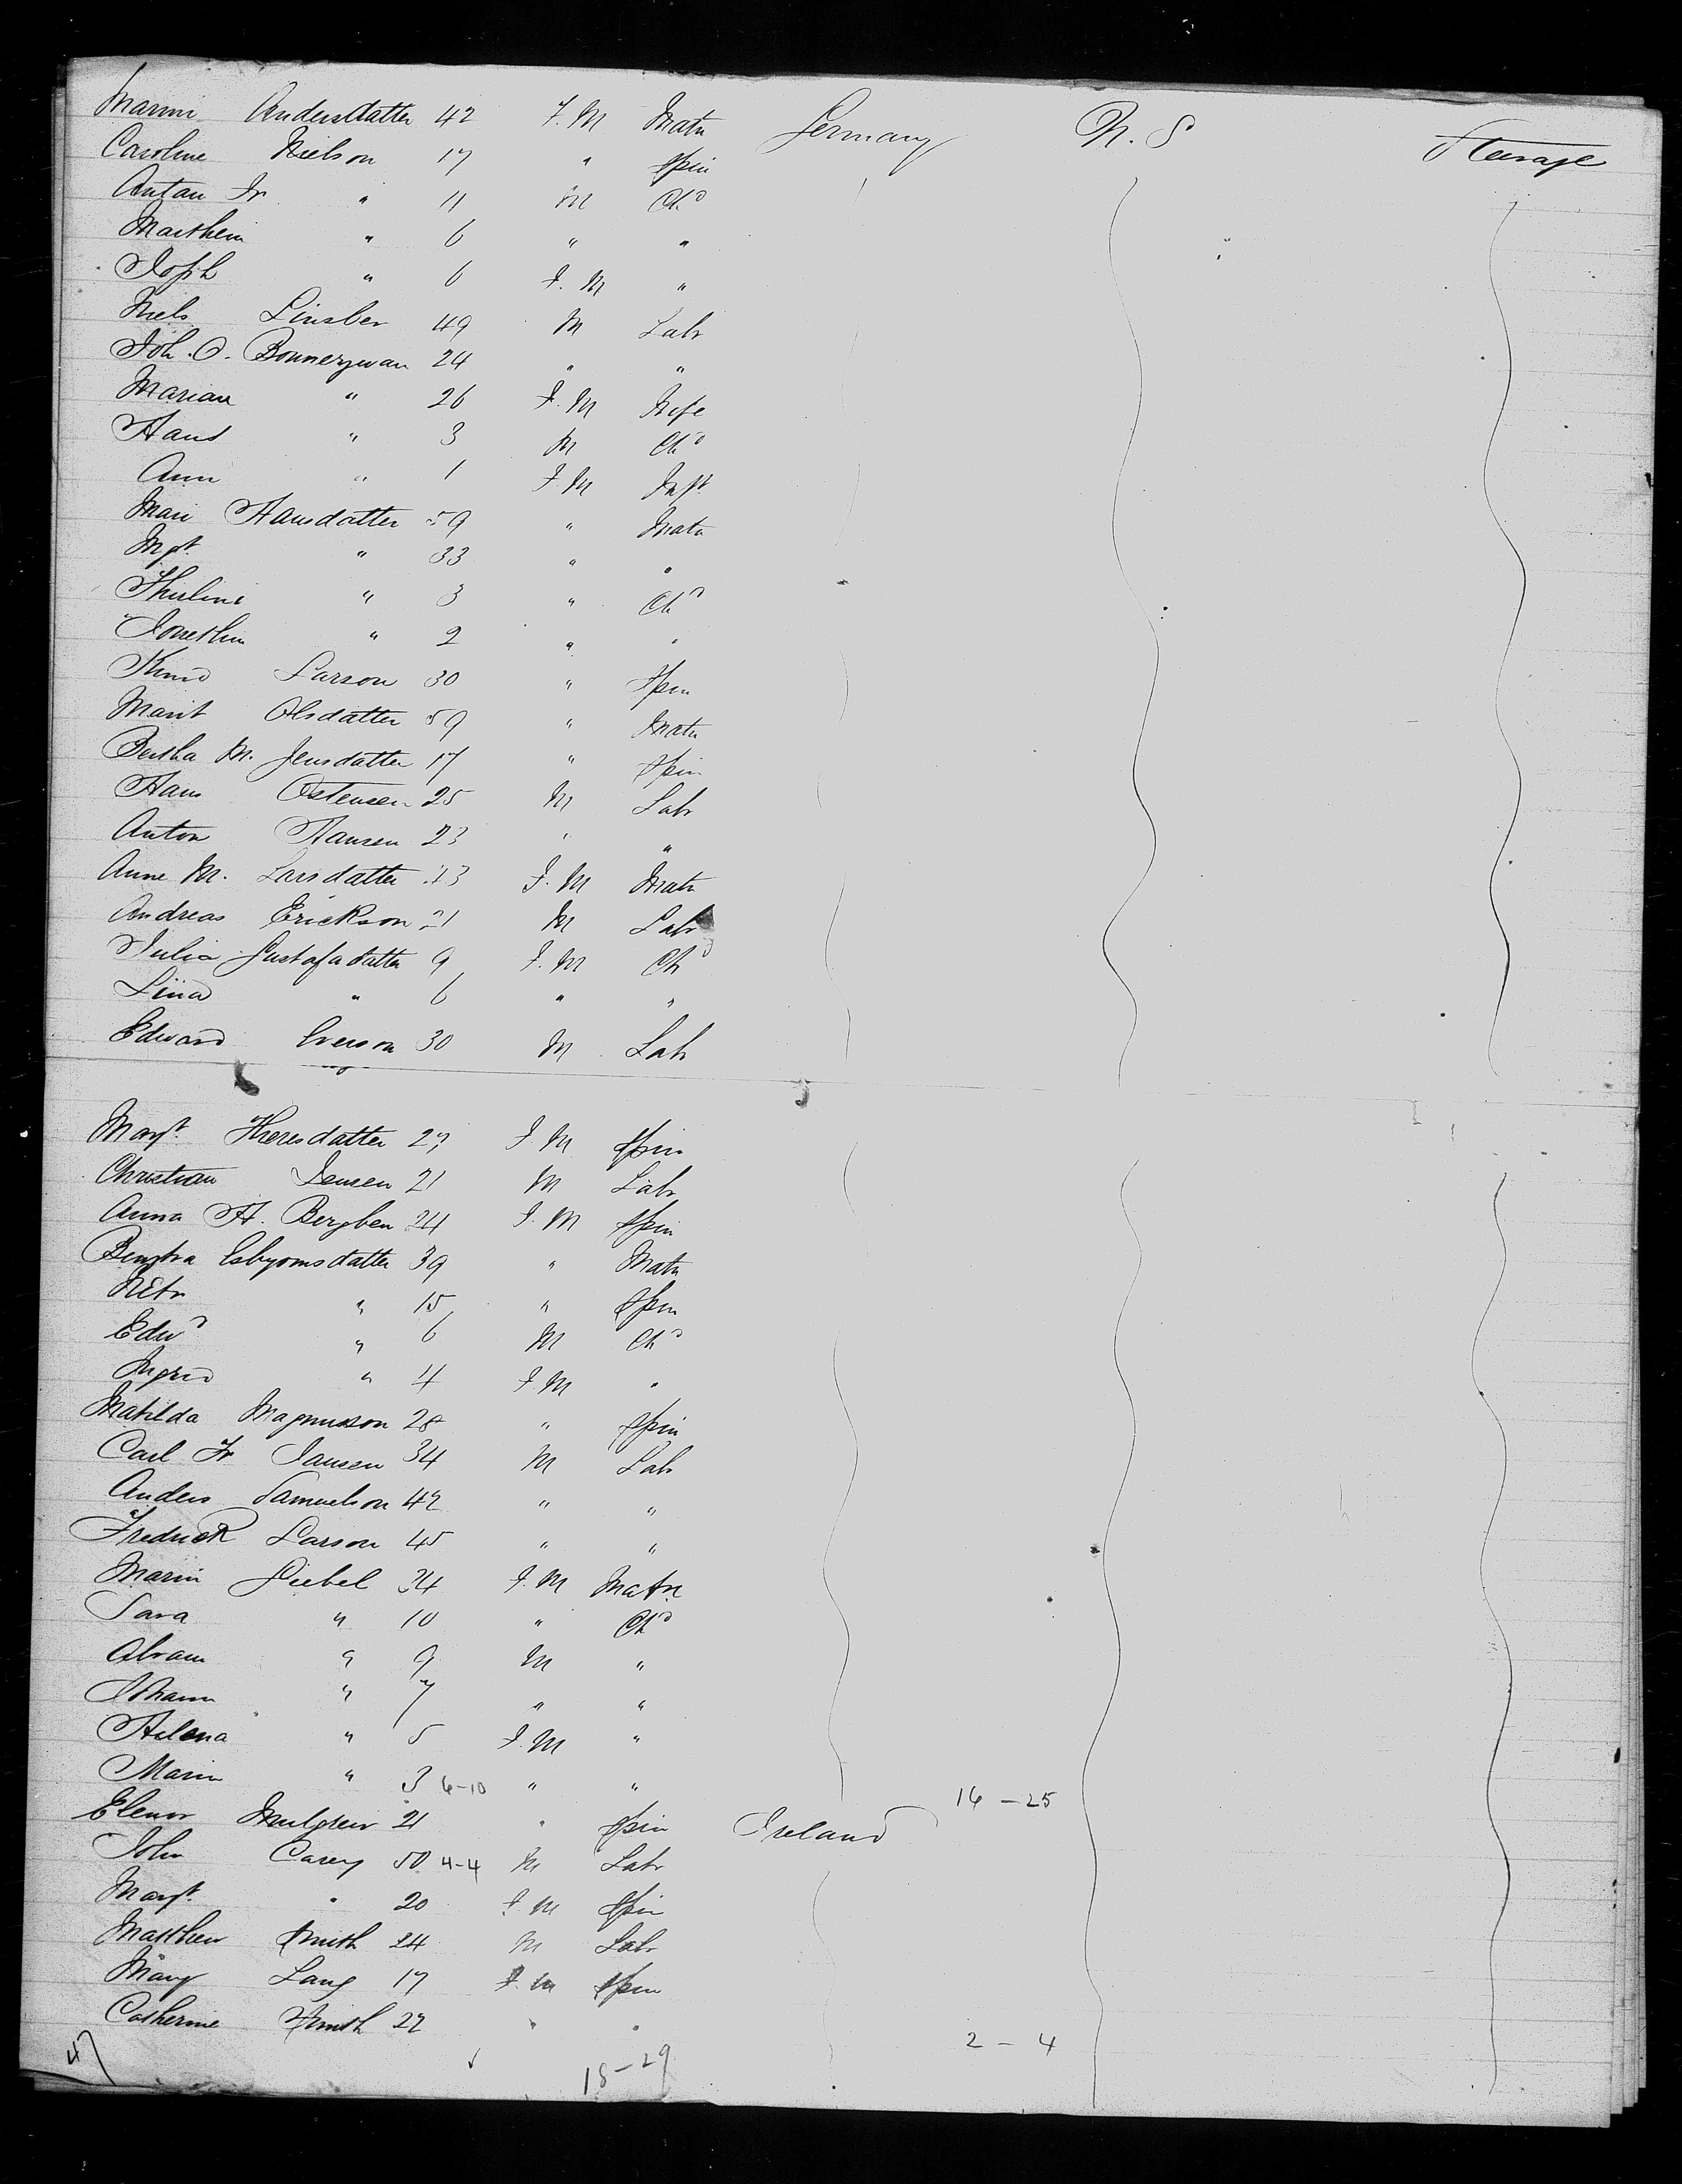 Andersdatter 42 F. M Matn Germany U. S Steerage
Caroline Nielson 17 " Spin
Anton Fr " 11 M Chd
" 6 " "
" 6 F. M "
Niels 49 M Labr
Joh. O. 24 " "
Marian " 26 F. M Wife
Hans " 3 M Chd
Ann " 1 F. M Inft
Mari Hansdatter 59 " Matn
Mgt " 33 " "
" 3 " Chd
" 2 " "
Knud Larson 30 " Spin
Marit Olsdatter 59 " Matn
Bertha M. Jensdatter 17 " Spin
Hans Ostensen 25 M Labr
Anton Hansen 23 " "
Anne M. Larsdatter F. M Matn
Andreas Erickson 21 M Labr
Julia Gustafadatter 9 F. M Chd
Lina " 6 " "
Edward Iverson 30 M Labr
Margt Theresdatter 27 F M Spin
Christian Jensen 21 M Labr
Anna H. Bergben 24 F. M Spin
Esbyornsdatter 39 " Matn
" 15 " Spin
Edwd " 6 M Chd
Ingrid " 4 F M "
Matilda Magnusson 28 " Spin
Carl Fr Jansen 34 M Labr
Anders Samuelson 42 " "
Fredrick Larson 45 " "
Marin Siebel 34 F. M Matn
Sara " 10 " Chd
Abram " 9 M "
Johann " 7 " "
Helena " 5 F. M "
Marin " 3 6-10 " " 14 - 25
Elenor Mulgrew 21 " Spin Ireland
John Carey 50 4-4 M Labr
Margt " 20 F. M Spin
Matthew Smith 24 M Labr
Mary Lang 17 F. M Spin
Catherine Smith 22 " " 2 - 4
47 18-29